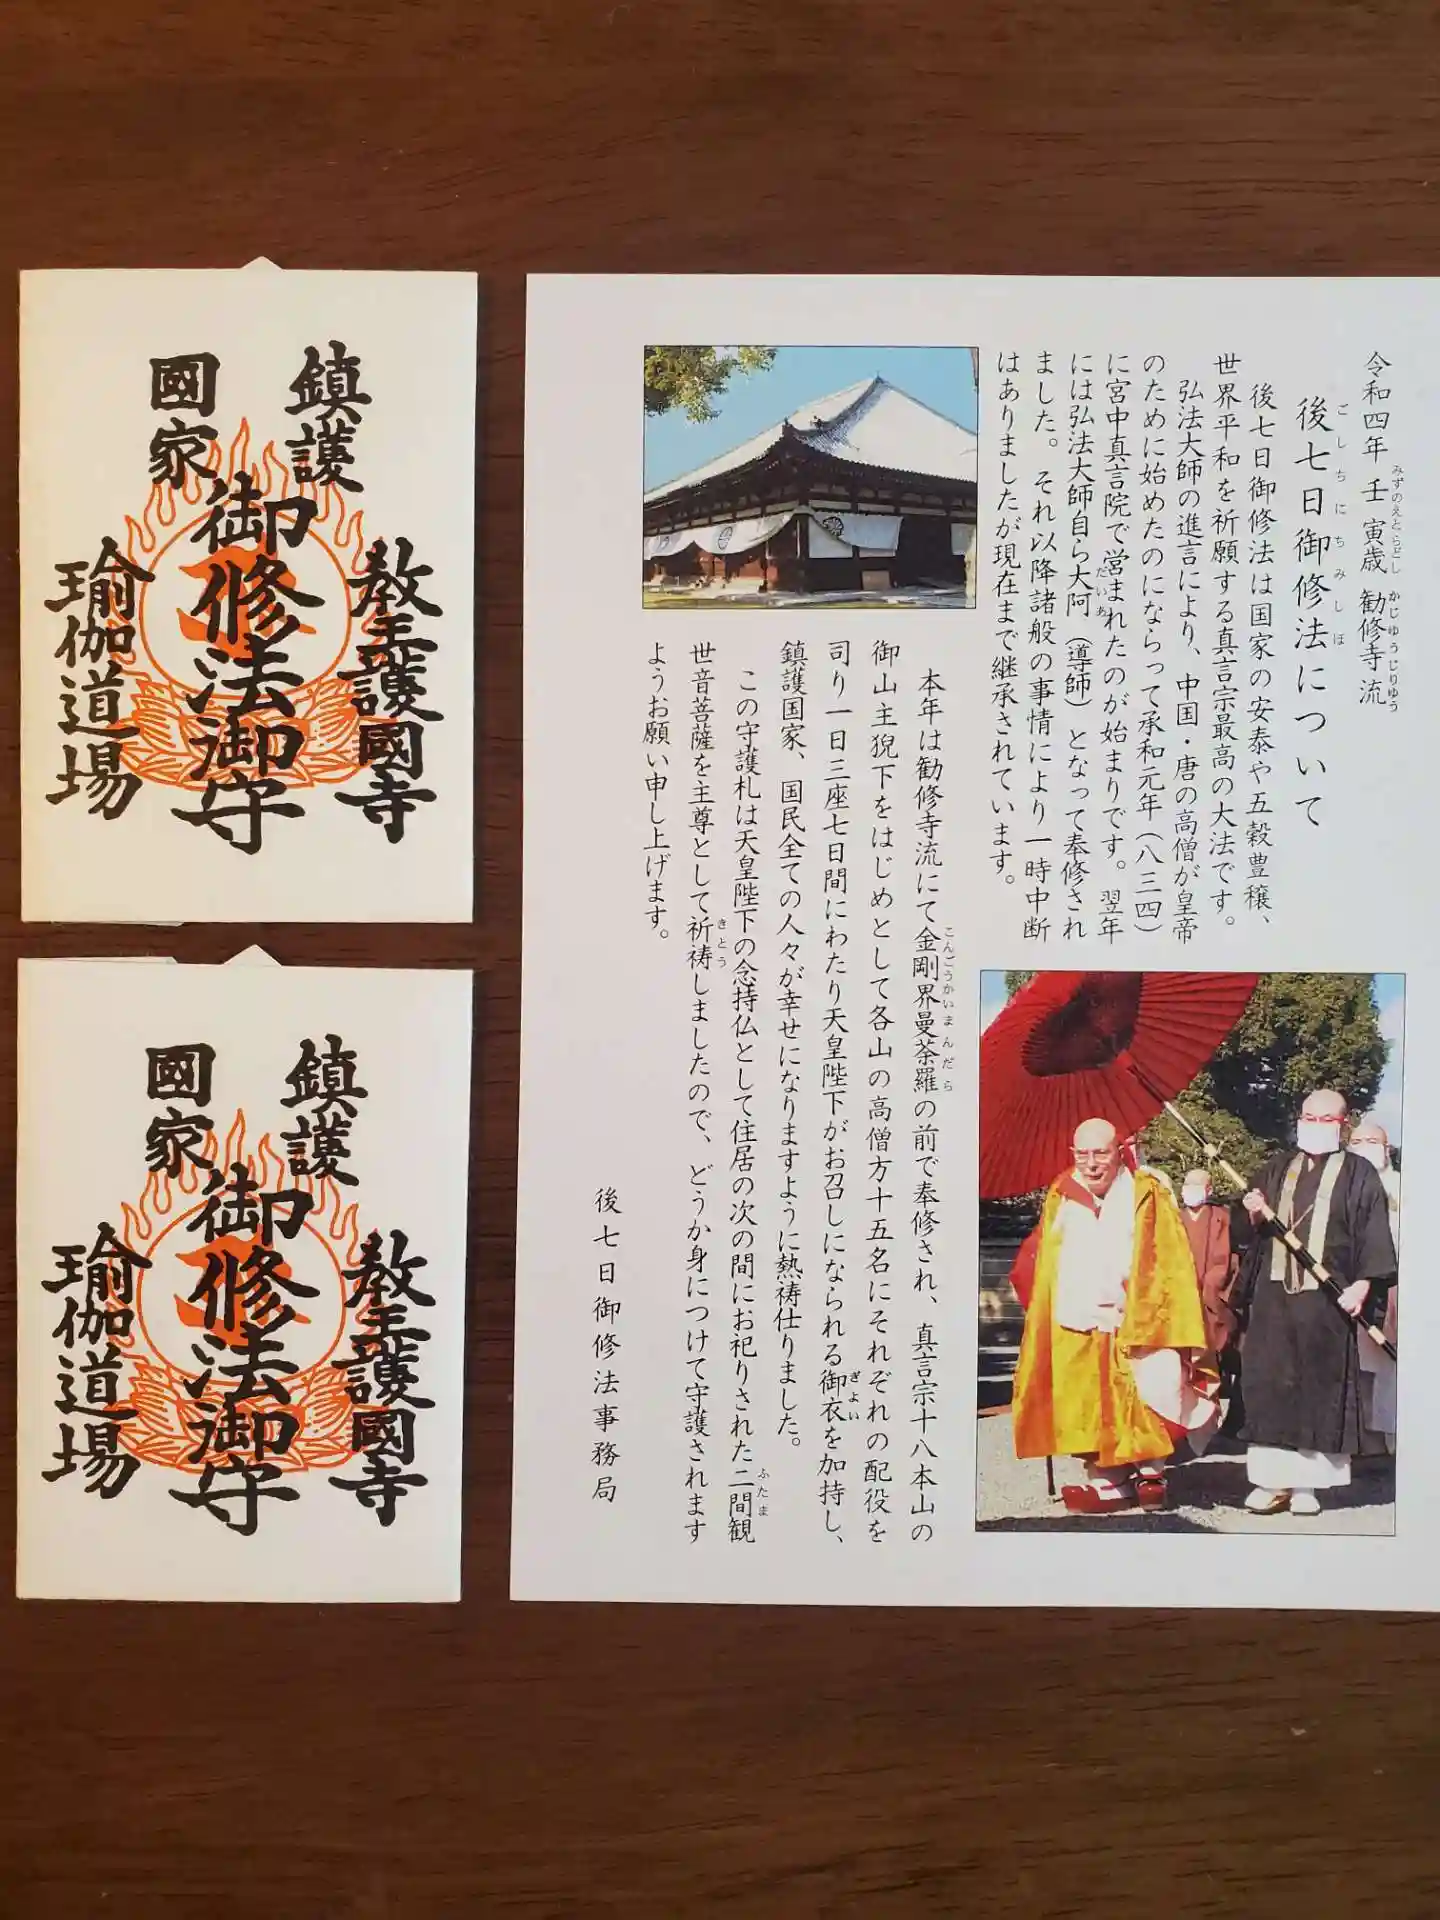 令和四年 壬寅歳 勧修寺流
みずのえとらどし かじゅうじりゅう
後七日御修法について
ごしちにちみしほ
後七日御修法は国家の安泰や五穀豊穣、
世界平和を祈願する真言宗最高の大法です。
弘法大師の進言により、中国・唐の高僧が皇帝
のために始めたのにならって承和元年（八三四）
に宮中真言院で営まれたのが始まりです。翌年
には弘法大師自ら大阿（導師）となって奉修され
だいあ
ました。それ以降諸般の事情により一時中断
はありましたが現在まで継承されています。
本年は勧修寺流にて金剛界曼荼羅の前で奉修され、真言宗十八本山の
こんごうかいまんだら
御山主猊下をはじめとして各山の高僧方十五名にそれぞれの配役を
司り一日三座七日間にわたり天皇陛下がお召しになられる御衣を加持し、
ぎょい
鎮護国家、国民全ての人々が幸せになりますように熱祷仕りました。
この守護札は天皇陛下の念持仏として住居の次の間にお祀りされた二間観
ふたま
世音菩薩を主尊として祈祷しましたので、どうか身につけて守護されます
きとう
ようお願い申し上げます。
後七日御修法事務局
鎮護
國家
教王護國寺
御修法御守
瑜伽道場
鎮護
國家
教王護國寺
御修法御守
瑜伽道場